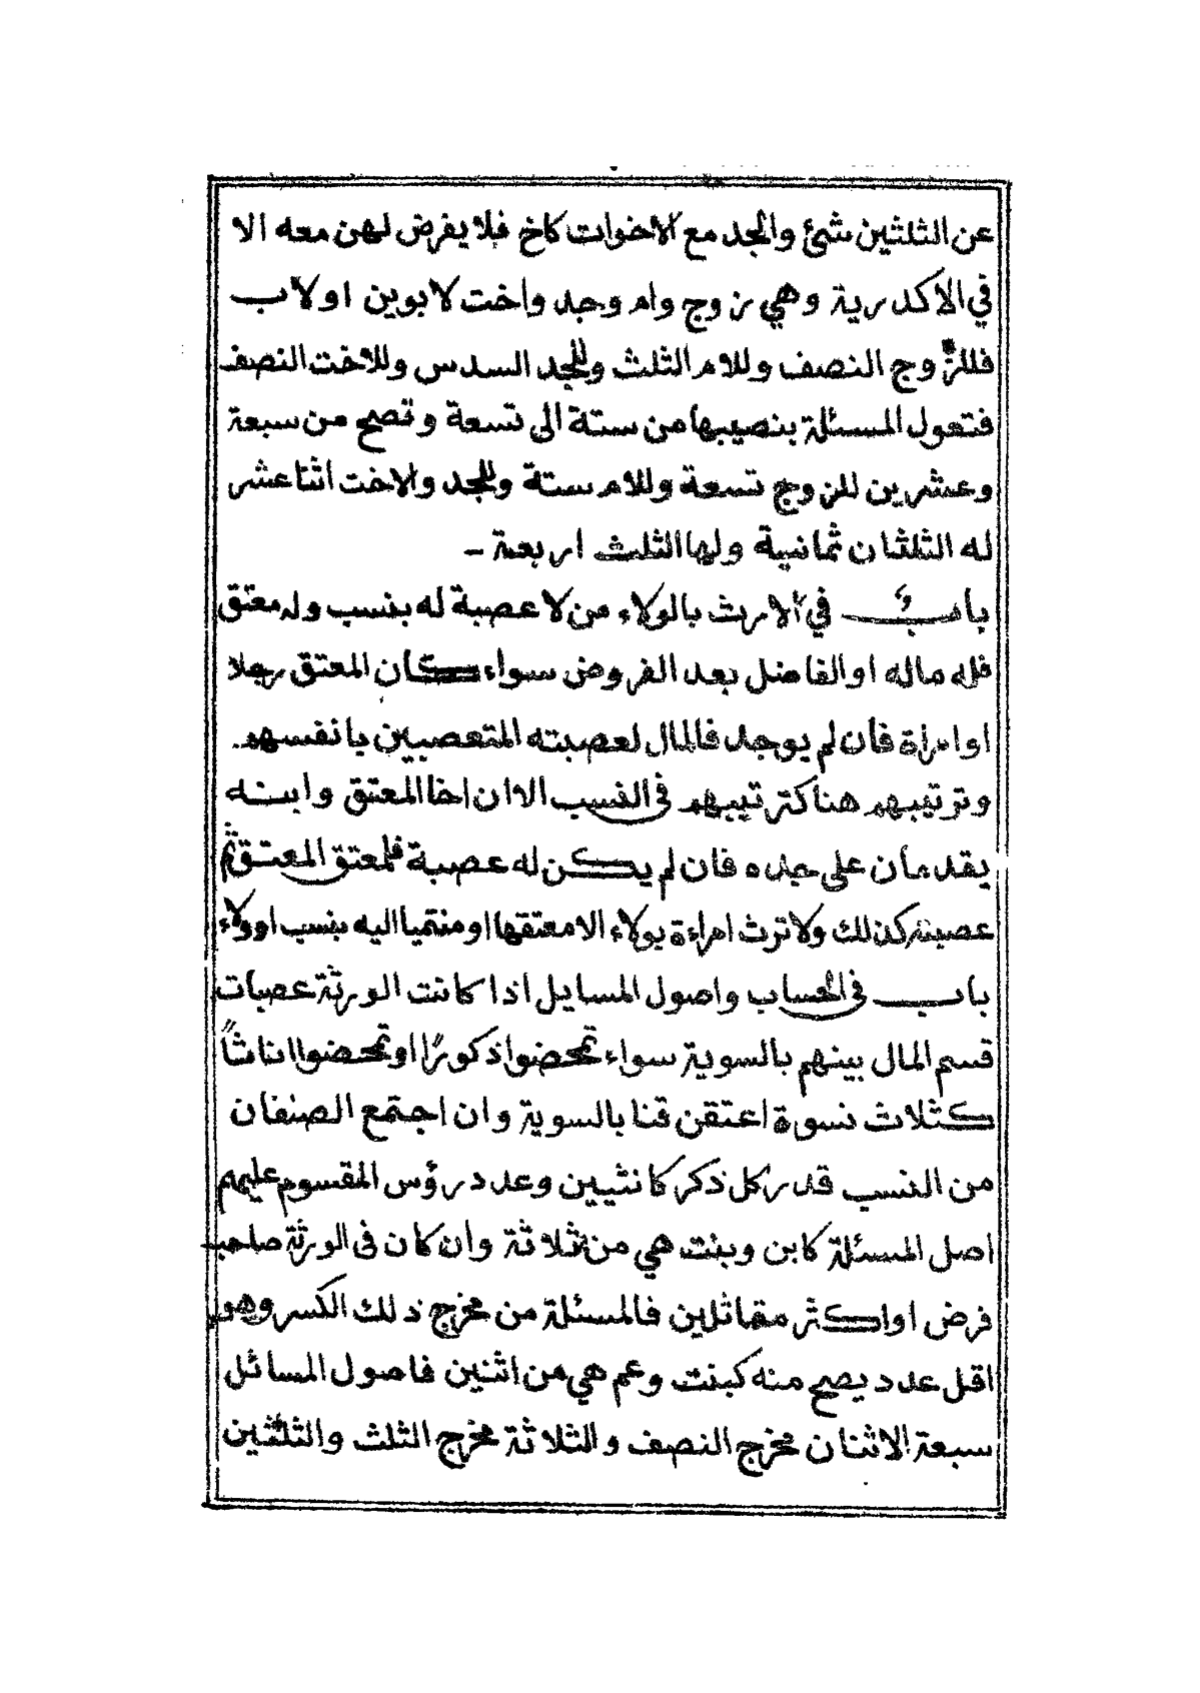 عن الثلثين شئ والجد مع الاخوات كاخ فلا يفرض لهن معه الا
في الاكدرية وهي زوج وام وجد واخت لابوين اولاب
فللزوج النصف وللام الثلث وللجد السدس وللاخت النصف
فتعول المسئلة بنصيبها من ستة الى تسعة وتصح من سبعة
وعشرين للزوج تسعة وللام ستة وللجد والاخت اثنا عشر
له الثلثان ثمانية ولها الثلث اربعة -
باب في الارث بالولاء من لا عصبة له بنسب وله معتق
فله ماله او الفاضل بعد الفروض سواء كان المعتق رجلا
او امراة فان لم يوجد فالمال لعصبته المتعصبين بانفسهم
وترتيبهم هنا كترتيبهم في النسب الا ان اخا المعتق وابنه
يقدمان على جده فان لم يكن له عصبة فلمعتق المعتق ثم
عصبته كذلك ولا ترث امراءة بولاء الا معتقها او منتميا اليه بنسب اوولاء
باب في الحساب واصول المسايل اذا كانت الورثة عصبات
قسم المال بينهم بالسوية سواء تمحضوا ذكورًا او تمحضوا اناثاً
كثلاث نسوة اعتقن قنا بالسوية وان اجتمع الصنفان
من النسب قدر كل ذكر كانثيين وعدد رؤس المقسوم عليهم
اصل المسئلة كابن وبنت هي من ثلاثة وان كان في الورثة صاحب
فرض او اكثر متماثلين فالمسئلة من مخرج ذلك الكسر وهو
اقل عدد يصح منه كبنت وعم هي من اثنين فاصول المسائل
سبعة الاثنان مخرج النصف والثلاثة مخرج الثلث والثلثين